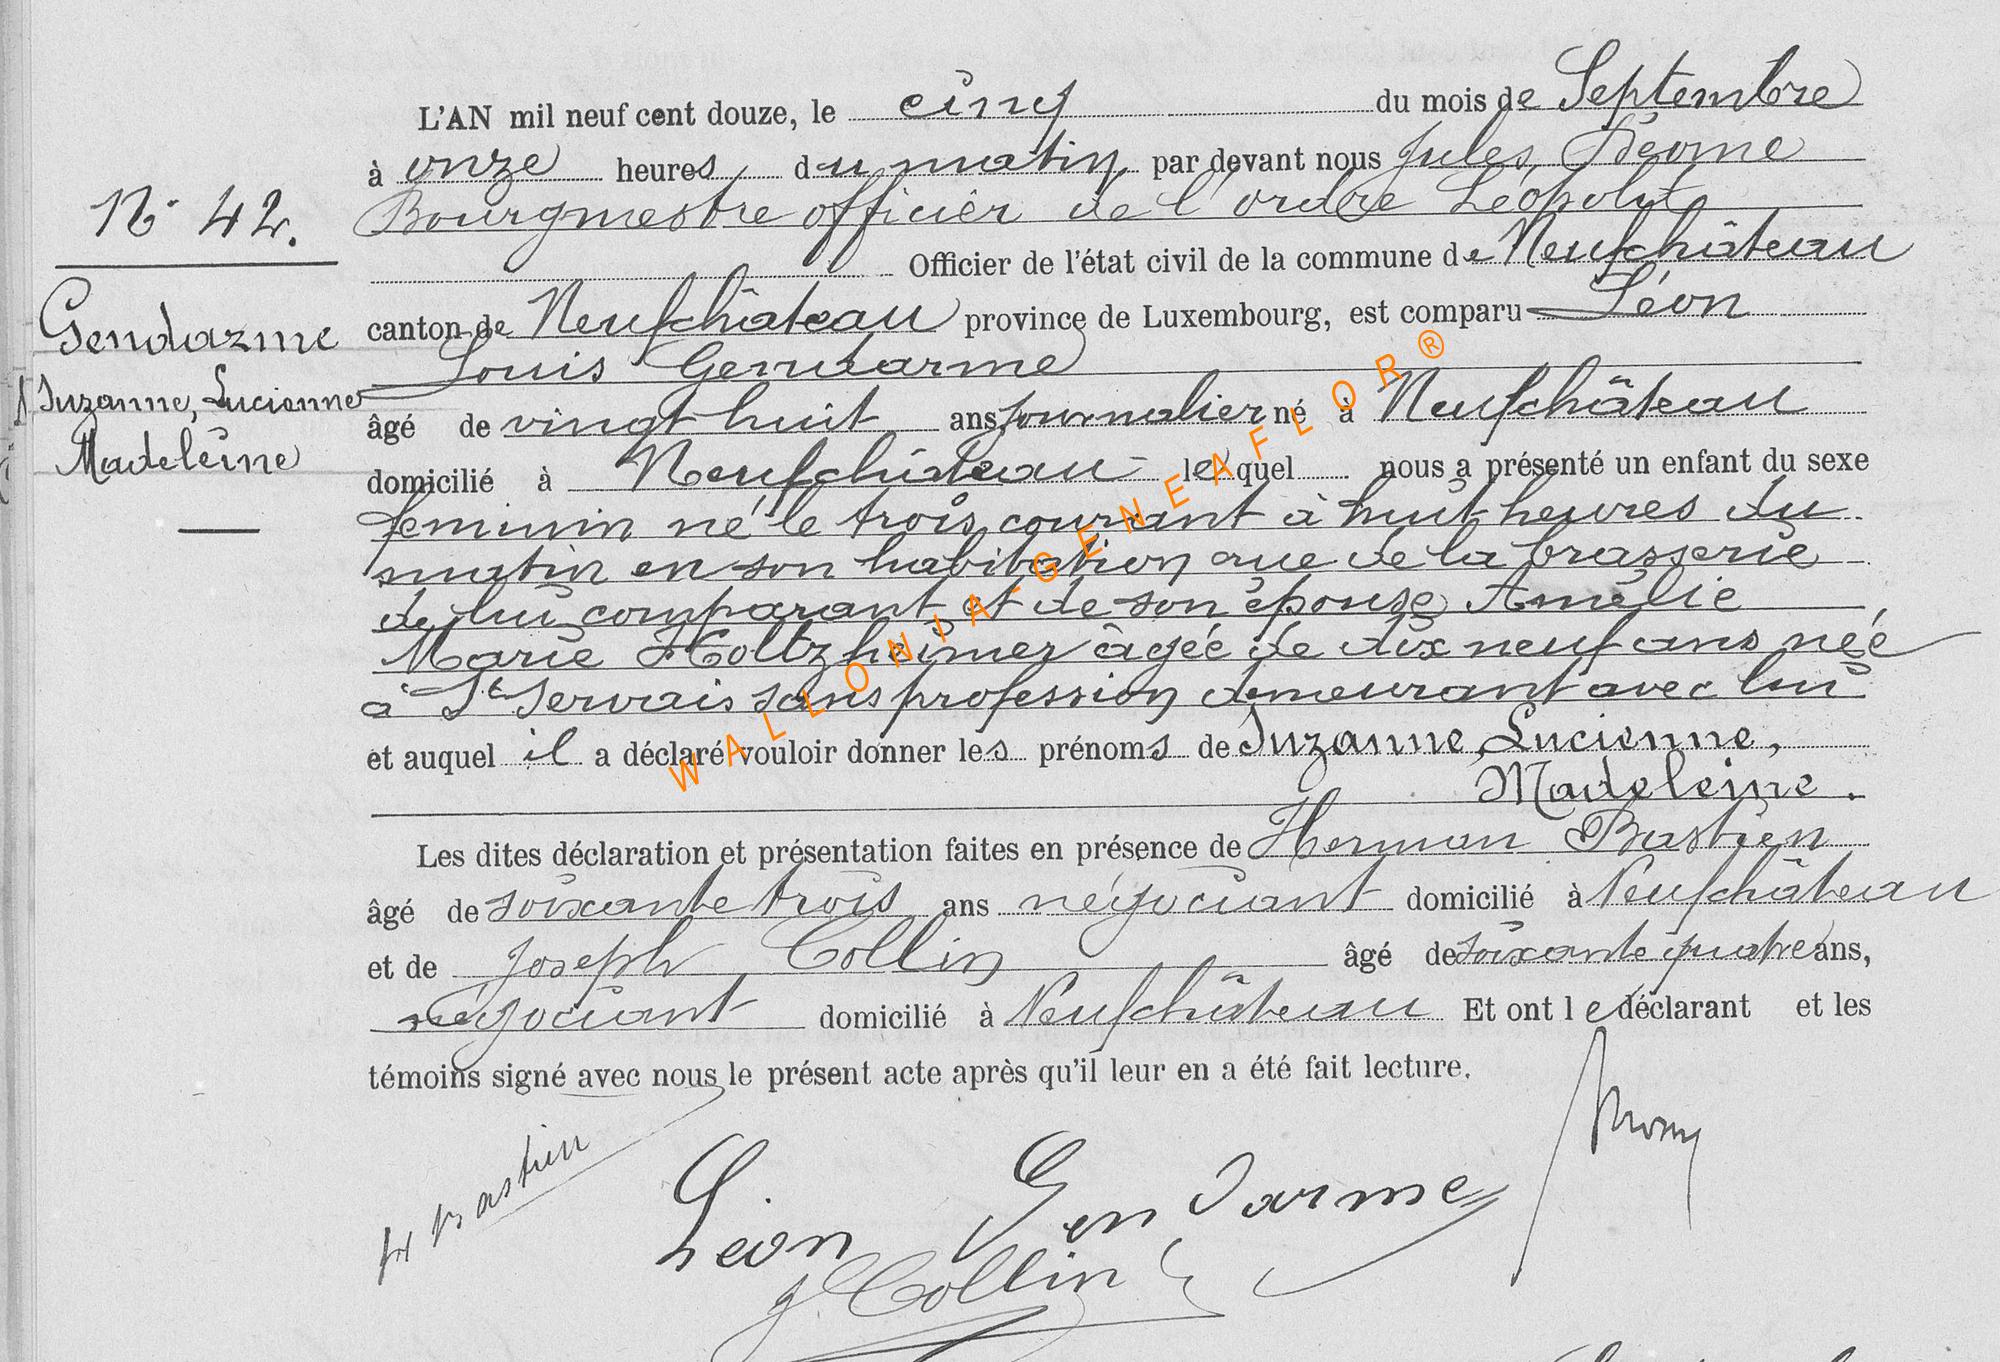 L'AN mil neuf cent douze, le cinq du mois de Septembre
à onze heures du matin par devant nous Jules,
Bourgmestre officier de l'ordre Léopold
Officier de l'état civil de la commune de Neufchâteau
N° 42.
canton de Neufchâteau province de Luxembourg, est comparu Léon
Louis Gendarme
Gendarme
Suzanne, Lucienne
Madeleine
âgé de vingt huit ans journalier né à Neufchâteau
domicilié à Neufchâteau lequel nous a présenté un enfant du sexe
feminin né le trois courant à huit heures du
matin en son habitation rue de la brasserie
de lui comparant et de son épouse Amélie
Marie Holtzheimer âgée de dix neuf ans née
à St Servais sans profession demeurant avec lui
et auquel il a déclaré vouloir donner les prénoms de Suzanne, Lucienne,
Madeleine.
Les dites déclaration et présentation faites en présence de Herman Bastien
âgé de soixante trois ans négociant domicilié à Neufchâteau
et de Joseph Collin âgé de soixante quatre ans,
négociant domicilié à Neufchâteau Et ont le déclarant et les
témoins signé avec nous le présent acte après qu'il leur en a été fait lecture.
H Bastien
Léon Gendarme
J. Collin
WALLONIA-GENEAFLOR®